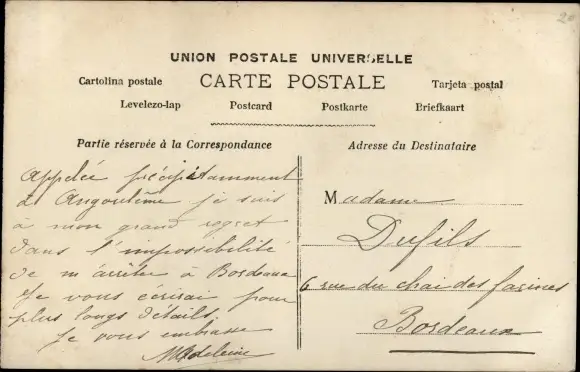 20
UNION POSTALE UNIVERSELLE
Cartolina postale CARTE POSTALE Tarjeta postal
Levelezo-lap Postcard Postkarte Briefkaart
Partie réservée à la Correspondance
Appelée précipitamment
à Angoulême je suis
à mon grand regret
dans l'impossibilité
de m'arrêter à Bordeaux
Je vous écrirai pour
plus longs détails
Je vous embrasse
Madeleine
Adresse du Destinataire
Madame
Dufils
6 rue du chai des farines
Bordeaux